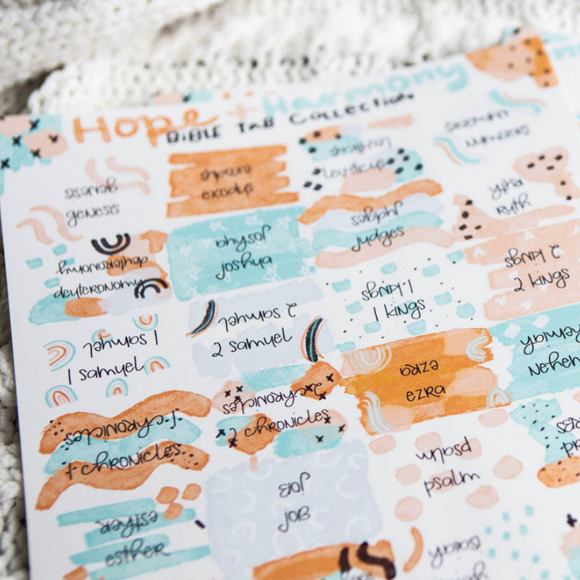 Hope + Harmony
BiBLE TaB COLLECTION
genesis
genesis
exodus
exodus
leviticus
leviticus
numbers
numbers
deuteronomy
deuteronomy
joshua
joshua
judges
judges
ruth
ruth
1 samuel
1 samuel
2 samuel
2 samuel
1 kings
1 kings
2 kings
2 kings
1 chronicles
1 chronicles
2 chronicles
2 chronicles
ezra
ezra
nehem
esther
esther
job
job
psalm
psalm